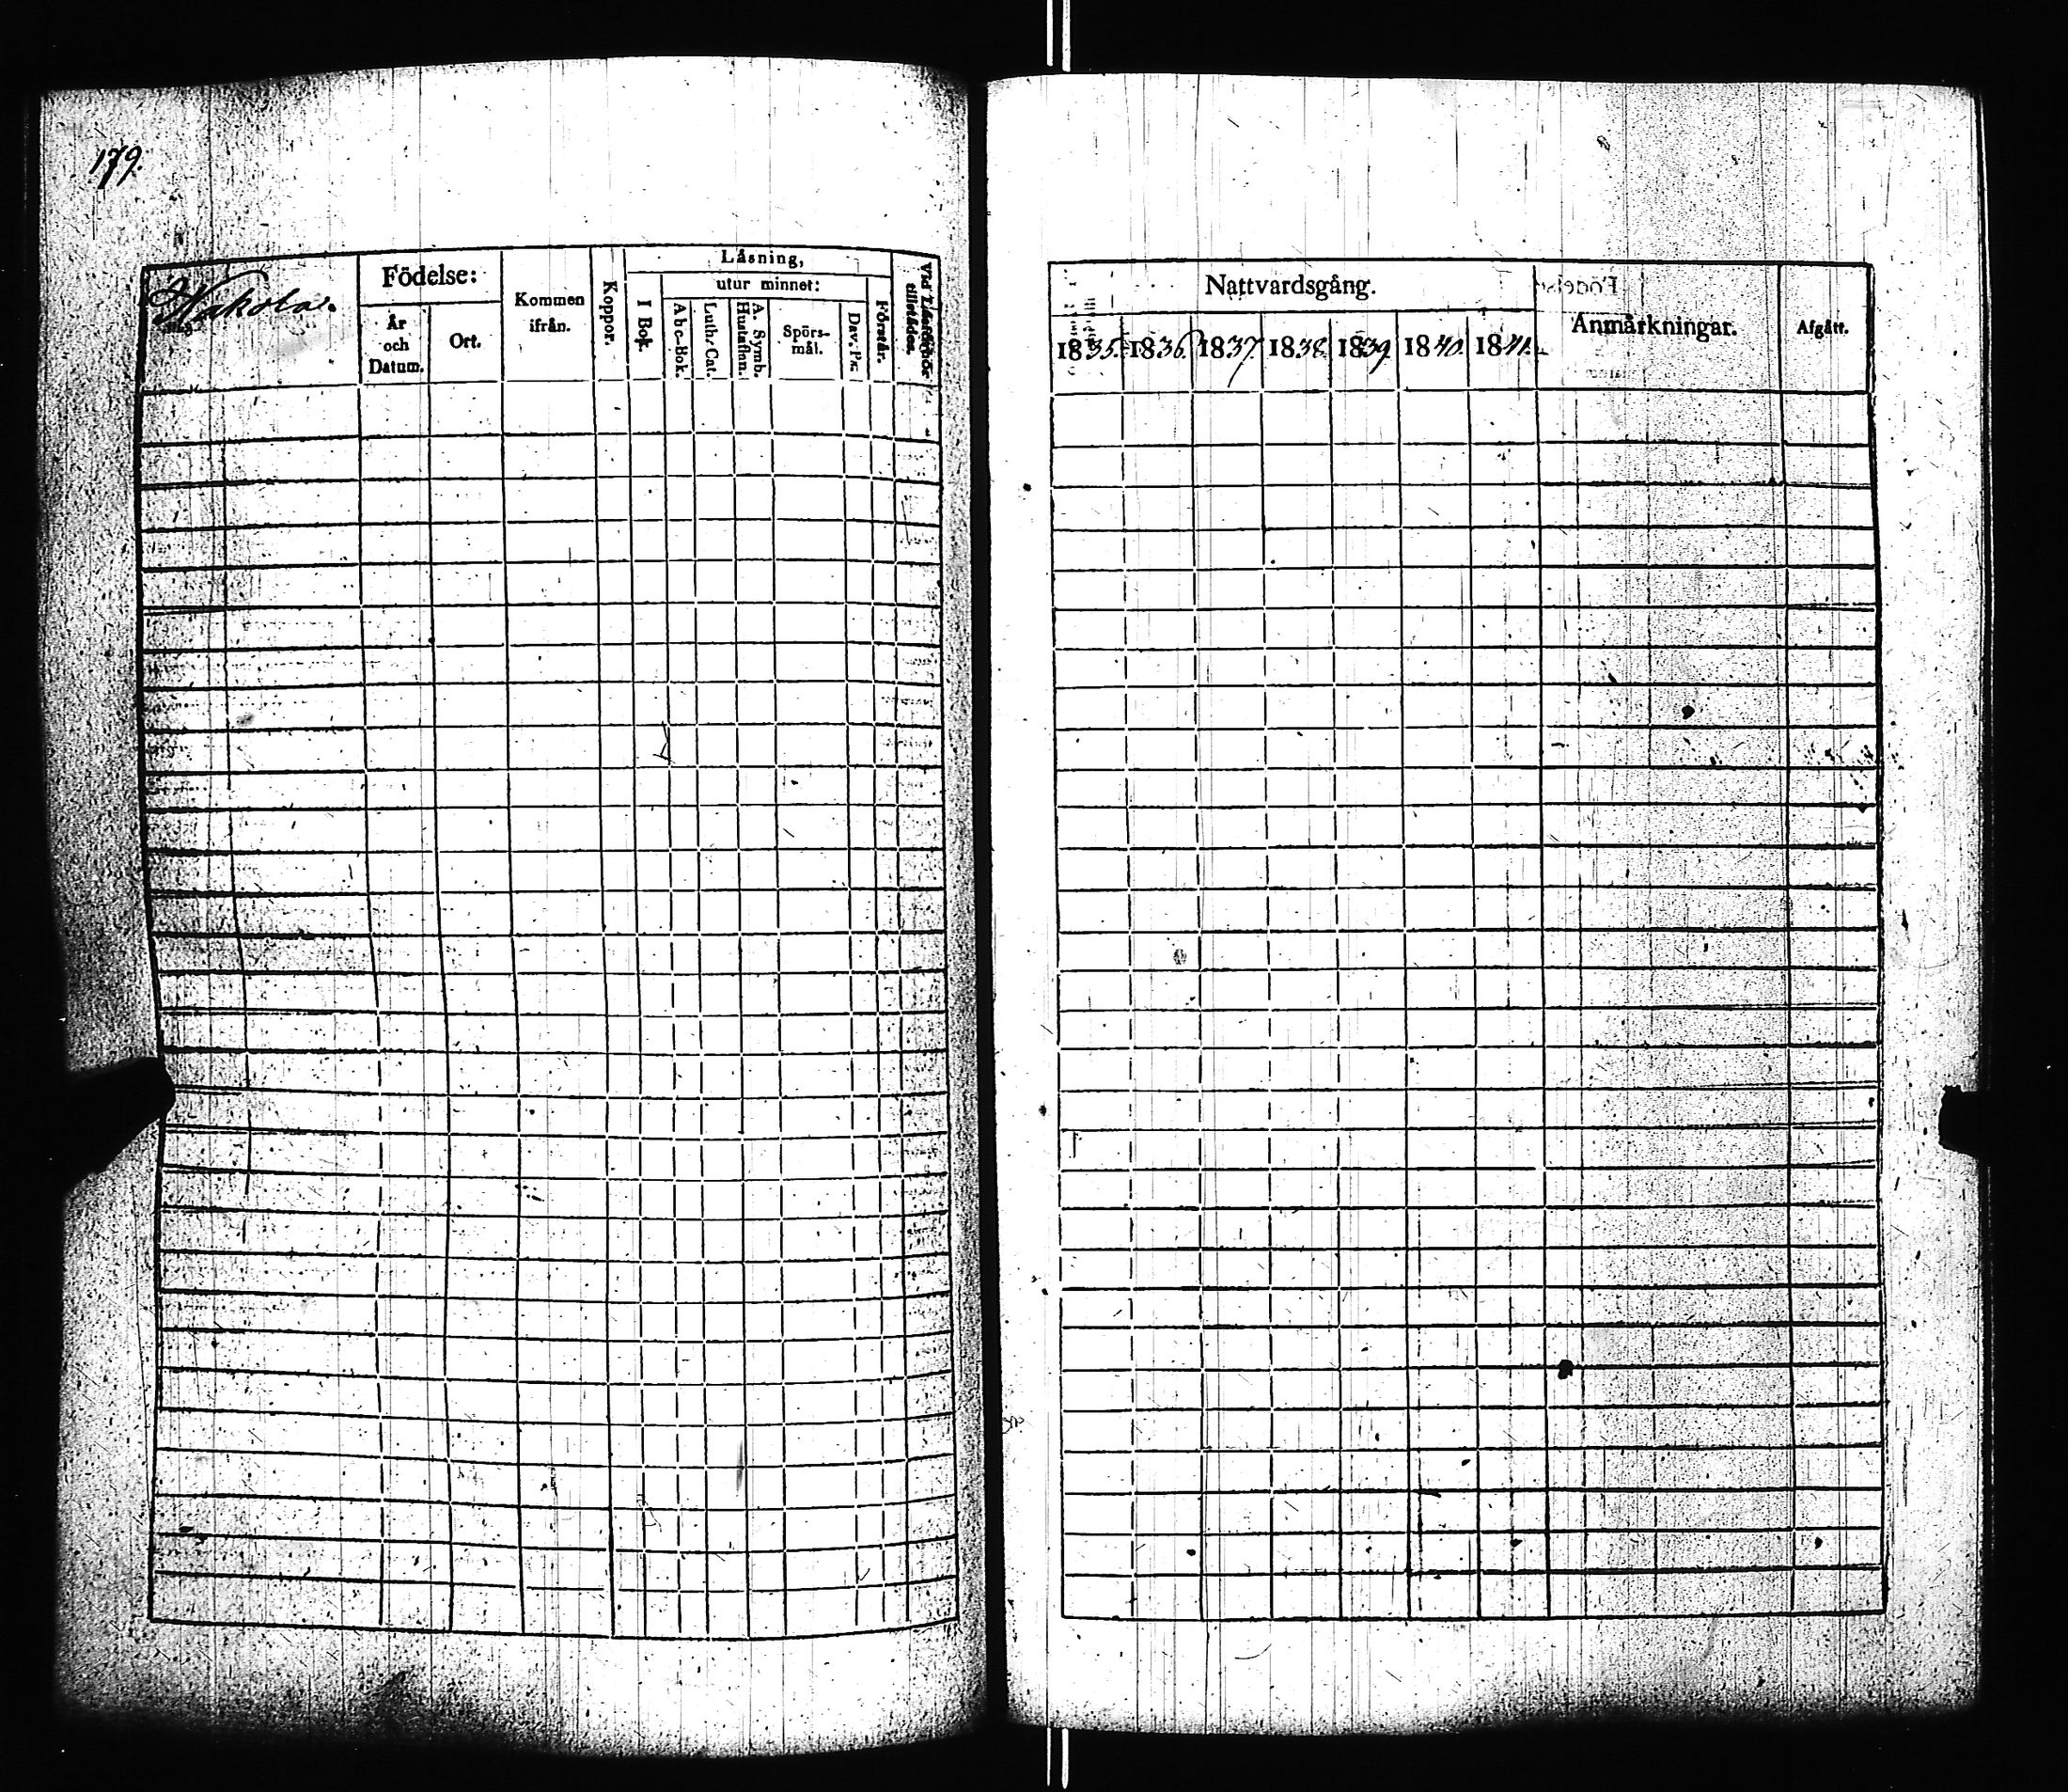 179.
Hakola.
Födelse:
År och Datum.
Ort.
Kommen ifrån.
Koppor.
Läsning,
I Bok.
utur minnet:
Abc-Bok.
Luth. Cat.
A. Symb. Hustaflan.
Spörs-mål.
Dav. Ps.
Förstår.
Vid Läsförhör tillstädes.
Nattvardsgång.
1835.
1836.
1837.
1838.
1839.
1840.
1841.
Anmärkningar.
Afgått.